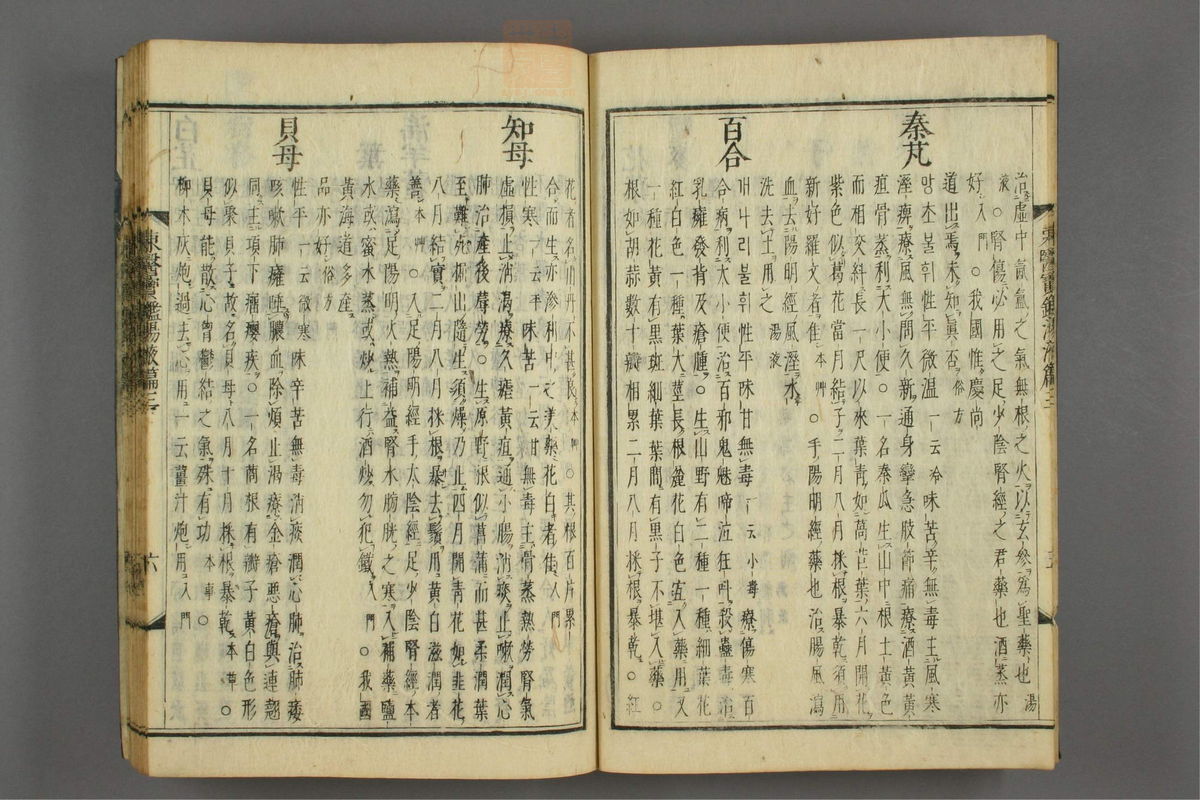 治虛中氤氳之氣無根之火以玄參爲聖藥也湯
液○腎傷必用之足少陰腎經之君藥也酒蒸亦
好入門○我國惟慶尚
道出焉未知眞否俗方
秦艽
망초불휘性平微温一云冷味苦辛無毒主風寒
溼痺療風無問久新通身攣急肢節痛療酒黃黃
疸骨蒸利大小便○一名秦瓜生山中根土黃色
而相交糾長一尺以來葉靑如萵苣葉六月開花
紫色似葛花當月結子二月八月採根暴乾須用
新好羅文者佳本艸○手陽明經藥也治腸風瀉
血去陽明經風溼水
洗去土用之湯液
百合
개나리불휘性平味甘無毒一云小毒療傷寒百
合病利大小便治百邪鬼魅啼泣狂叫殺蠱毒治
乳癰發背及瘡腫○生山野有二種一種細葉花
紅白色一種葉大莖長根麁花白色宜入藥用又
一種花黃有黑斑細葉葉間有黑子不堪入藥○
根如胡蒜數十瓣相累二月八月採根暴乾○紅
東醫寶鑑湯液篇三
花者名山丹不甚良本艸○其根百片累
合而生亦滲利中之美藥花白者佳入門
知母
性寒一云平味苦一云甘無毒主骨蒸熱勞腎氣
虛損止消渴療久瘧黃疸通小腸消痰止嗽潤心
肺治產後蓐勞○生原野根似菖蒲而甚柔潤葉
至難死掘出隨生須燥乃止四月開靑花如韭花
八月結實二月八月採根暴去鬚用黃白滋潤者
善本艸○入足陽明經手太陰經足少陰腎經本
藥瀉足陽明火熱補益腎水膀胱之寒入補藥鹽
水或蜜水蒸或炒上行酒炒勿犯鐵入門○我國
黃海道多產
品亦好俗方
貝母
性平一云微寒味辛苦無毒消痰潤心肺治肺痿
咳嗽肺癰唾膿血除煩止渴療金瘡惡瘡與連翹
同主項下瘤癭疾○一名䔲根有瓣子黃白色形
似聚貝子故名貝母八月十月採根暴乾本草○
貝母能散心胷鬱結之氣殊有功本事○
柳木灰炮過去心用一云薑汁炮用入門
東醫寶鑑湯液篇三 六